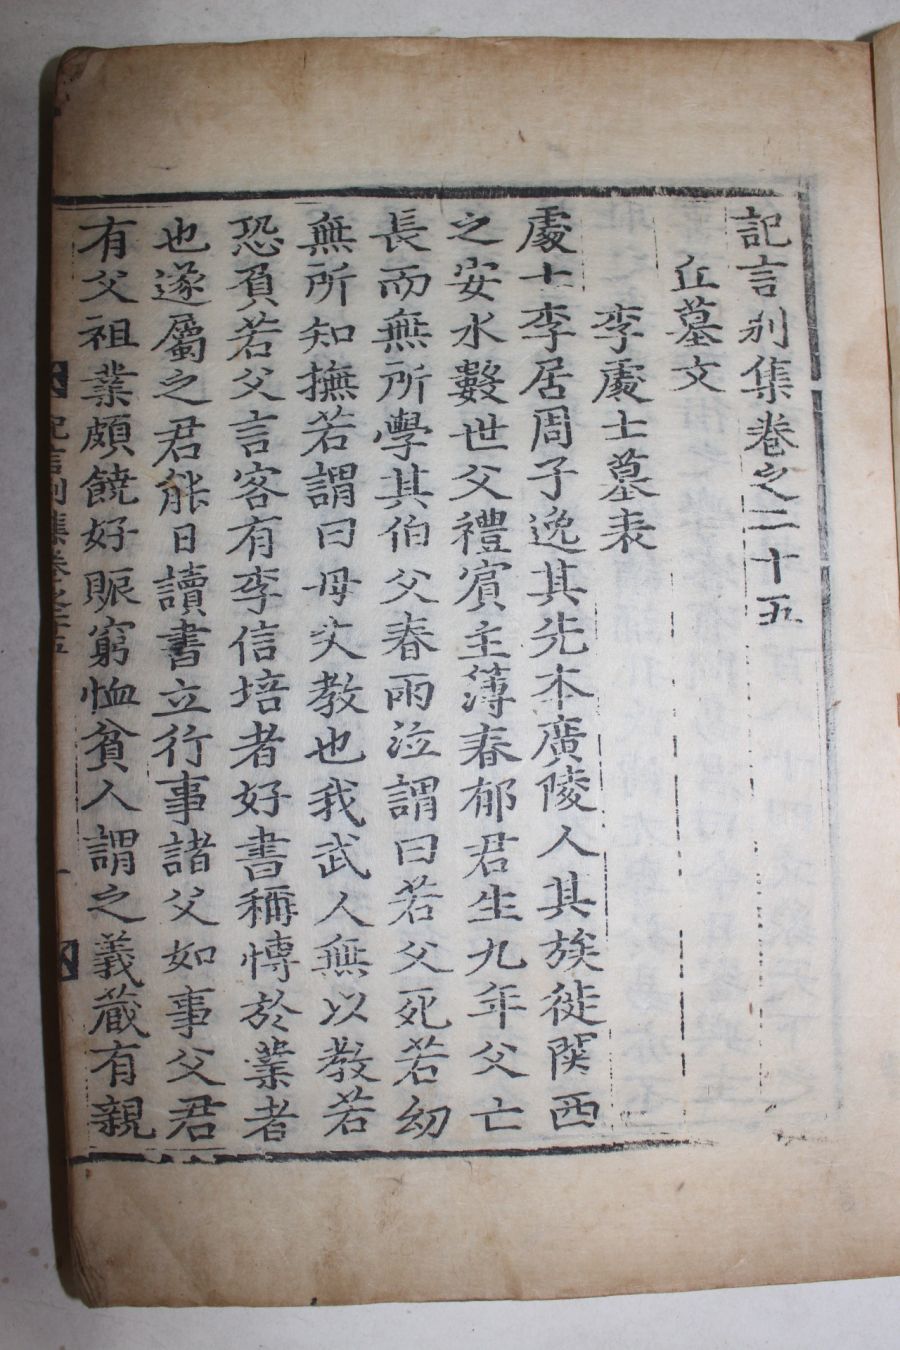 記言別集卷之二十五
丘墓文
李處士墓表
處士李居周子逸其先本廣陵人其族徙関西
之安水數世父禮賓主簿春郁君生九年父亡
長而無所學其伯父春雨泣謂曰若父死若幼
無所知撫若謂曰母失教也我武人無以教若
恐負若父言客有李信培者好書稱慱於業者
也遂屬之君能日讀書立行事諸父如事父君
有父祖業頗饒好賑窮恤貧人謂之義蔵有親
記言別集卷之二十五
一